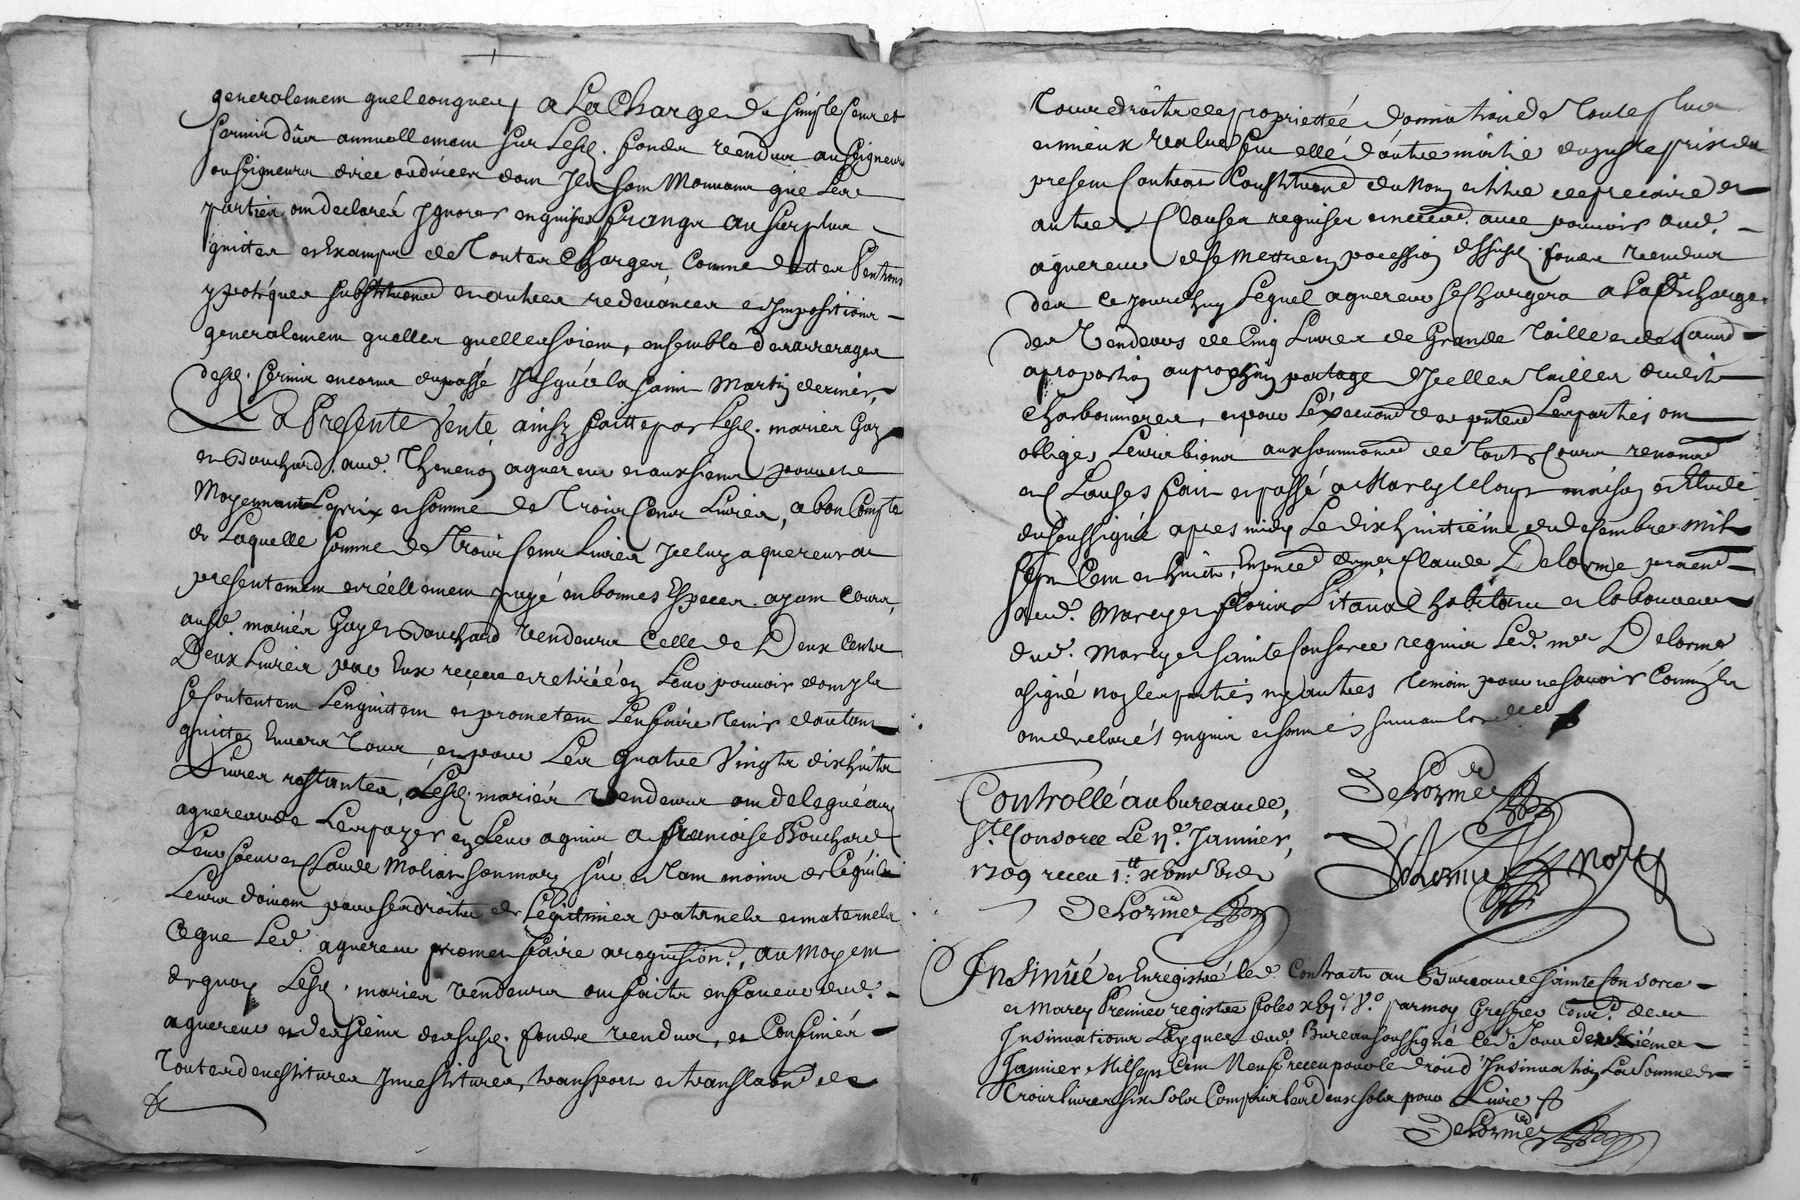 generalement quelconques a La Charge du simple Cens et
servis dûs annuellement sur Lesd. fonds vendus au Seigneur
ou seigneurs direct ou directes dont Jls sont Mouvant que Les
parties ont declarés Jgnorer enquises francs au surplus
quittes et Exampts de Toutes Charges Comme dettes Pentions
ypoteques substitutions et autres redevances et Jmpositions
generalement quelles quelles soient, ensemble des arrerages
desd. servis encourus du passé Jusqu'a la saint Martin dernier,
La Presente Vente ainsy faitte par Lesd. mariés Gay
et Bouchard aud. Thevenon aquereur et aux siens
Moyennant Le prix et somme de Trois Cent Livres, a bon Compte
de Laquelle somme de Trois Cent Livres Jceluy aquereur a
presentement et réellement payé en bonnes Especes ayant Cours,
ausd. mariés Gay et Bouchard vendeurs Celle de Deux Cents
Deux Livres par Eux reçeue et retirée en Leur pouvoir dont Jls
se Contentent L'en quittent et promettent L'en faire tenir d'autant
quitte Envers Tous, et pour Les quatre Vingts dix huits
Livres restantes, Lesd. mariés Vendeurs ont delegué aud.
aquereur de Les payer en Leur aquit a francoise Bouchard
Leur soeur et Claude Moliar son mary sur et tant moins de ce qu'ils
Leurs doivent pour ses droits de Legitimes paternels et maternels
Ce que Led. aquereur promet faire a requisition, au Moyent
de quoy Lesd. mariés vendeurs ont faits en faveur dud.
aquereur et des siens desusd. fonds vendus, et Confinés
Toutes devestitures Jnvestitures, transport et translation de
Tous droits de proprietté domination de Toute plus
et mieux value feu elle d'autre moitié du juste prix du
present Contrat Constitution du Nom et titre de precaire et
autres Clauses requises et necess. avec pouvoir aud.
aquereur de se Mettre en possession desusd. fonds vendus
des ce Jourd'huy Lequel aquereur se Chargera a La decharge
des Vendeurs de Cinq Livres de Grande Taille et de
a proportion au prochain partage d'Jcelles Tailles dudit
Charbonnieres, et pour L'execution des presentes Les parties ont
obligés Leurs biens aux soumissions de Toutes Cours renonc.
et Clauses fait et passé a Marcy le loup maison et Etude
du soussigné apres midy Le dix huitiéme de decembre Mil
sept Cent et huict, En presence de mr Claude Delorme praticien
aud. Marcy et floris Litaud habitant et laboureur
dud. Marcy et sainte Consorce requis Led. mr Delorme
a signé non les parties ny l'autres temoin pour ne sçavoir Comm'Jls
ont declarés enquis et sommés suivant L'ordce
DeLorme
DeLorme Nore
Controllé au bureau de,
Ste Consorce Le 2e. Janvier,
1709 receu
DeLorme
Insinué et Enregistré led. Contract au Bureau de sainte Consorce
et Marcy Premier registre folio xbj. Vo. par moy Greffier Comis. de
Insinuations Laïques dud. Bureau soussigné le Jour deuxiéme
Janvier Mil sept Cent Neuf receu pour le droit d'Insinuation La somme de
Trois livres six sols Compris les deux sols pour Livre
DeLorme